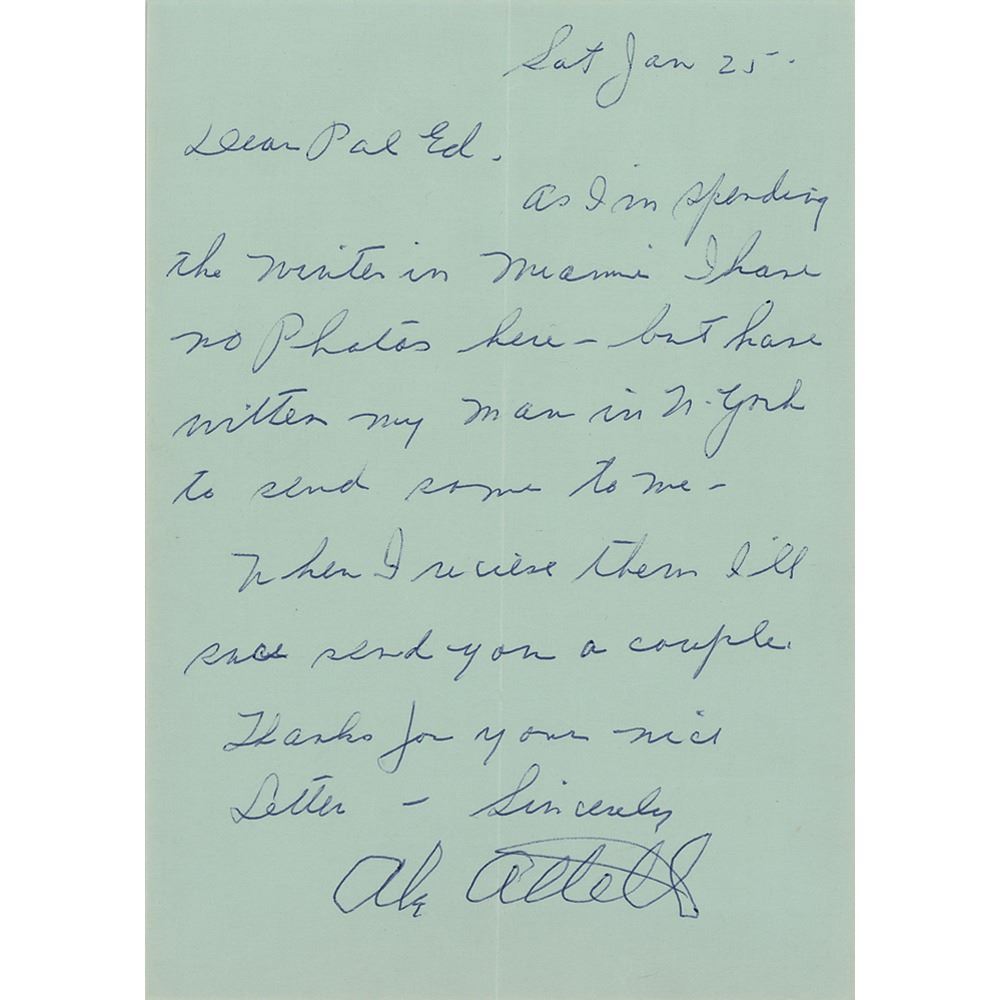 Sat Jan 25.
Dear Pal Ed.
as I'm spending
the winter in Miamie I have
no Photos here - but have
written my man in N. York
to send some to me -
When I reciese them I'll
sure send you a couple.
Thanks for your nice
Letter - Sincerely
Abe Attell